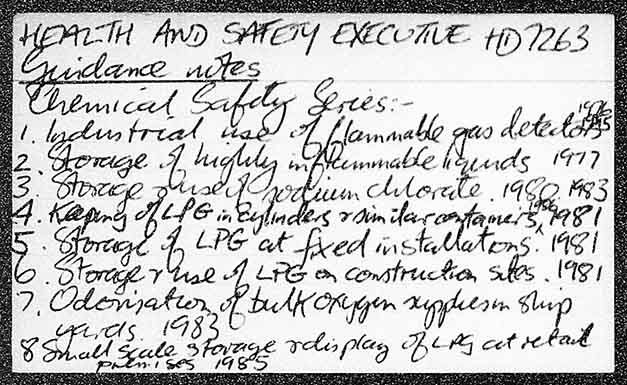 HEALTH AND SAFETY EXECUTIVE HD7263
Guidance notes
Chemical Safety Series:-
1. Industrial use of flammable gas detectors
2. Storage of highly inflammable liquids 1977
3. Storage & use of sodium chlorate. 1980 1983
4. Keeping of LPG in cylinders & similar containers, 1986 1981
5. Storage of LPG at fixed installations. 1981
6. Storage & use of LPG on construction sites. 1981
7. Odorisation of bulk oxygen supplies in ship
yards 1983
8 Small scale storage & display of LPG at retail
premises 1985